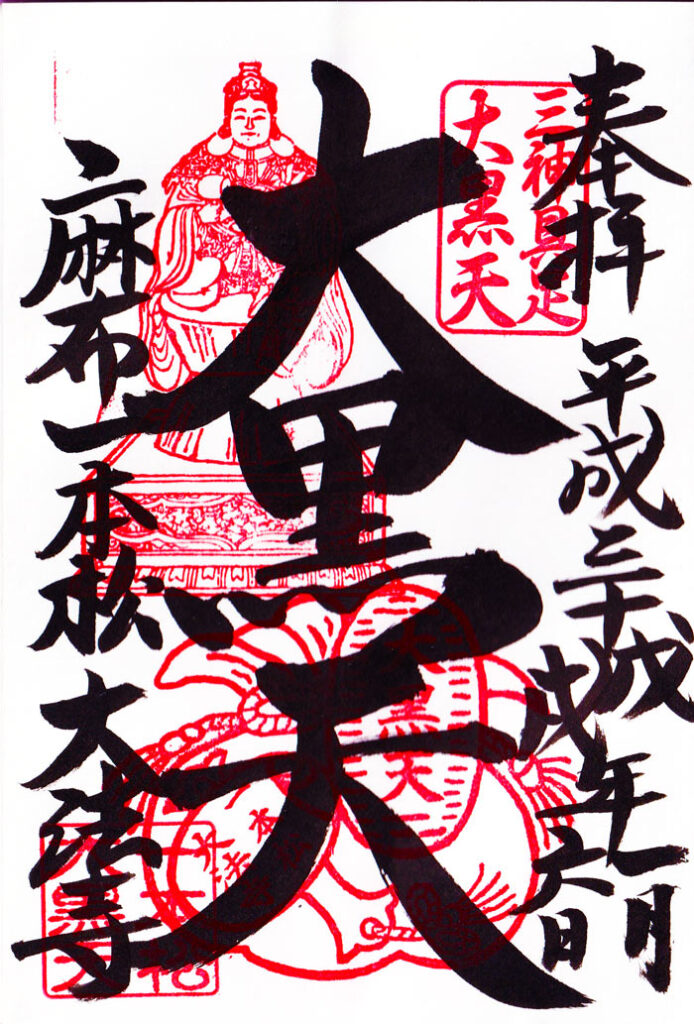 奉拝 平成三十戊戌年一月六日
三神具足
大黒天
大黒天
大黒天
麻布一本松 大法寺